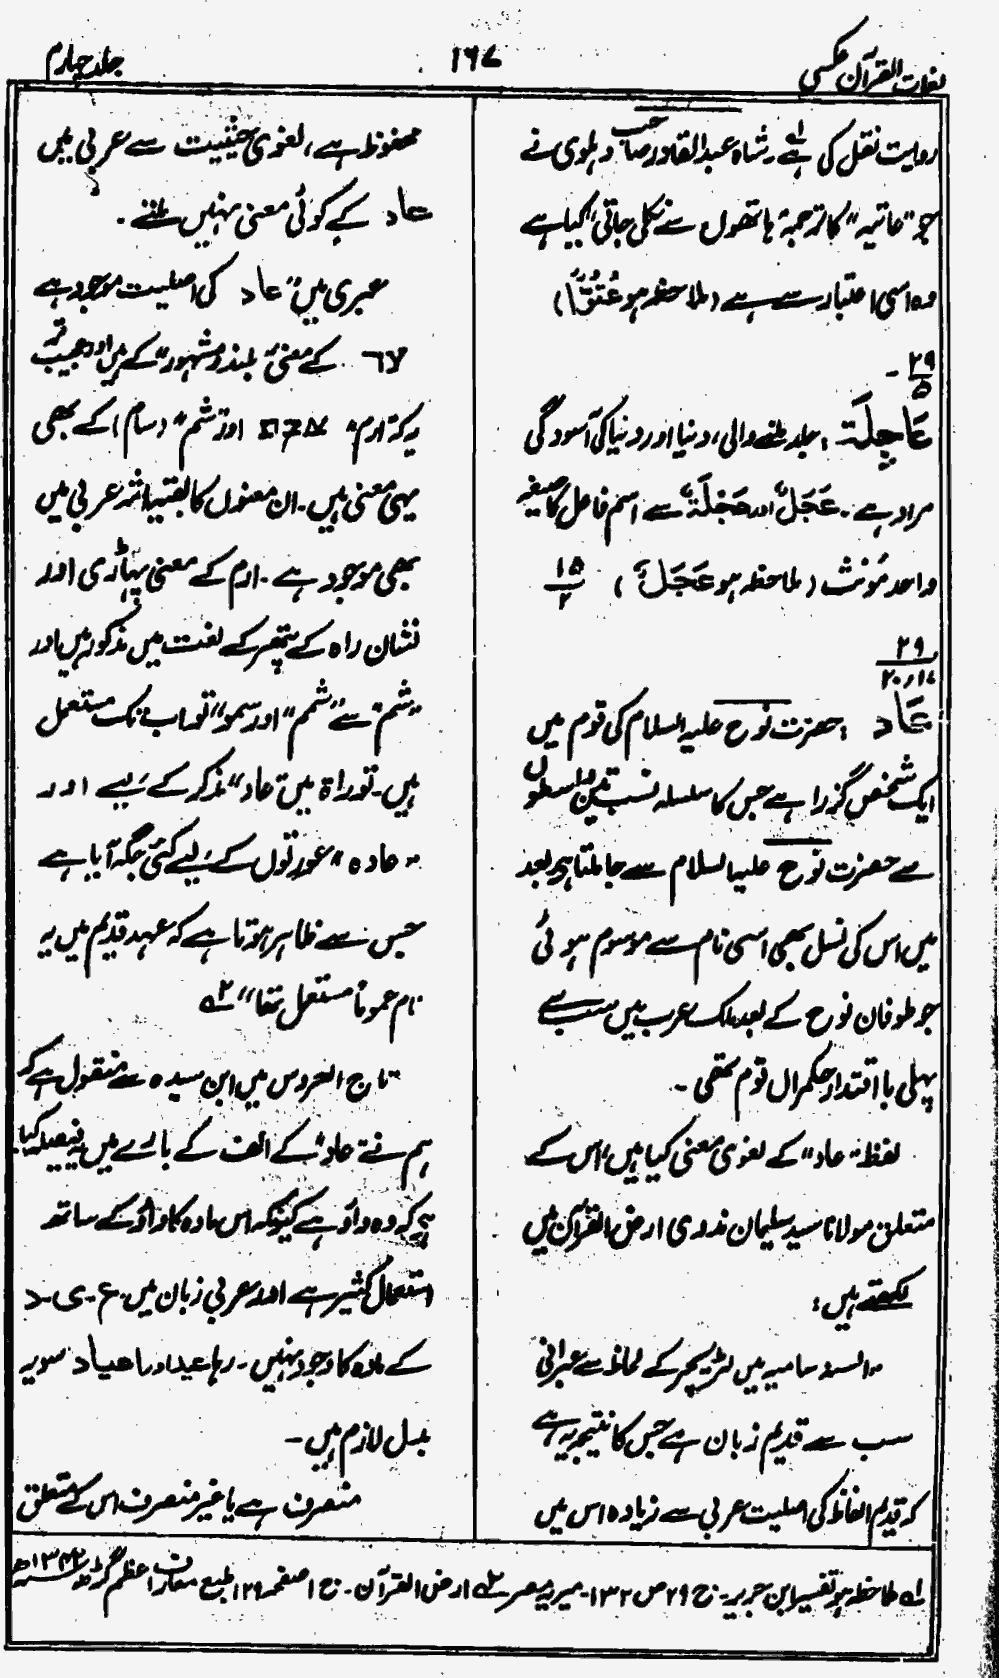 لغات القرآن عکسی
۱۶۷
جلد چہارم
روایت نقل کی ہے لہ شاہ عبدالقادر صاحب دہلوی نے
جو "عاتیہ" کا ترجمہ "ہاتھوں سے نکلی جاتی" کیا ہے
وہ اسی اعتبار سے ہے (ملاحظہ ہو عُتُوًّا)
۲۹
۵
عَاجِلَۃ : جلد ملنے والی، دنیا اور دنیا کی آسودگی
مراد ہے ۔ عَجَلٌ اور عَجَلَۃٌ سے اسم فاعل کا صیغہ
واحد مؤنث (ملاحظہ ہو عَجَلَ) ۱۵
۲
۲۹
عَاد : حضرت نوح علیہ السلام کی قوم میں
ایک شخص گزرا ہے جس کا سلسلہ نسب تین نسلوں
سے حضرت نوح علیہ السلام سے جا ملتا ہے بعد
میں اس کی نسل بھی اسی نام سے موسوم ہوئی
جو طوفان نوح کے بعد ملک عرب میں سب سے
پہلی با اقتدار حکمراں قوم تھی ۔
لفظ "عاد" کے لغوی معنی کیا ہیں، اس کے
متعلق مولانا سید سلیمان ندوی ارض القرآن میں
لکھتے ہیں :
"السنہ سامیہ میں لٹریچر کے لحاظ سے عبرانی
سب سے قدیم زبان ہے جس کا نتیجہ یہ ہے
کہ قدیم الفاظ کی اصلیت عربی سے زیادہ اس میں
محفوظ ہے، لغوی حیثیت سے عربی میں
عاد کے کوئی معنی نہیں ملتے ۔
عبری میں "عاد" کی اصلیت موجود ہے
کے معنی "بلند و مشہور" کے ہیں اور عجیب تر
یہ کہ "ارم" اور "شم" (سام) کے بھی
یہی معنی ہیں ۔ ان معنوں کا بقیہ اثر عربی میں
بھی موجود ہے ۔ ارم کے معنی پہاڑی اور
نشان راہ کے پتھر کے لغت میں مذکور ہیں اور
"شم" سے "شمم" اور "سمو" تو اب تک مستعمل
ہیں ۔ توراۃ میں "عاد" مذکر کے لیے اور
"عادہ" عورتوں کے لیے کئی جگہ آیا ہے
جس سے ظاہر ہوتا ہے کہ عہد قدیم میں یہ
نام عموماً مستعمل تھا" ۲ھ
تاج العروس میں ابن سیدہ سے منقول ہے کہ
ہم نے "عاد" کے الف کے بارے میں یہ فیصلہ کیا
ہے کہ وہ واؤ ہے کیونکہ اس مادہ کا واؤ کے ساتھ
استعمال کثیر ہے اور عربی زبان میں ۔ ع ۔ ی ۔ د
کے مادہ کا وجود نہیں ۔ رہا عید اور اعیاد سو یہ
بدل لازم ہیں ۔
منصرف ہے یا غیر منصرف اس کے متعلق
لہ ملاحظہ ہو تفسیر ابن جریر ۔ ج ۲۹ ص ۱۳۲ ۔ میریہ مصر ۲ھ ارض القرآن ۔ ج ۱ صفحہ ۱۲۹ طبع معارف اعظم گڑھ